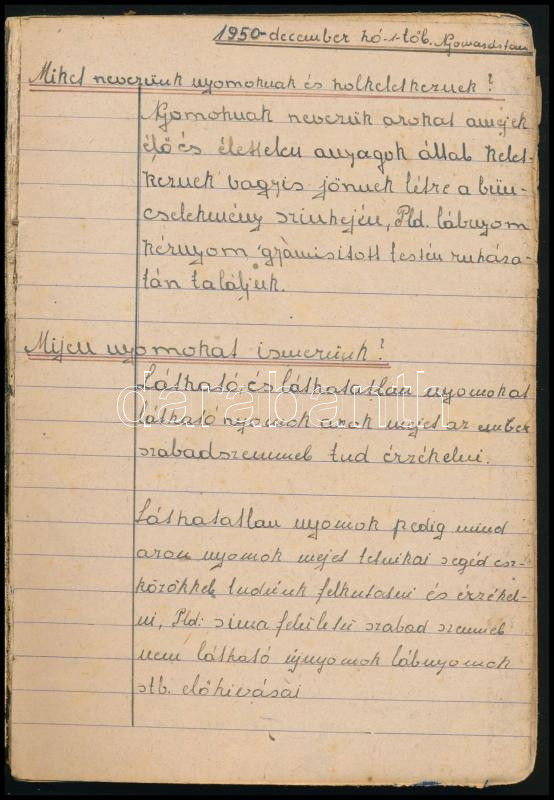 1950-december hó-1-től. Nyomozástan
Miket nevezünk nyomoknak és holkeletkeznek?
Nyomoknak nevezük azokat amejek
élő és élettelen anyagok által kelet-
keznek vagyis jönnek létre a bün-
cselekmény szinhején, Pld. lábnyom
kéznyom gyanusitott testén ruháza-
tán találjuk.
Mijen nyomokat ismerünk?
Látható és láthatatlan nyomokat
látható nyomok azok mejet az ember
szabadszemmel tud érzékelni.
darabanth
Láthatatlan nyomok pedig mind
azon nyomok mejet tehnikai segéd esz-
közökkel tudunk felkutatni és érzékel-
ni, Pld: sima felületü szabad szemmel
nem látható ujnyomok lábnyomok
stb. előhivásai